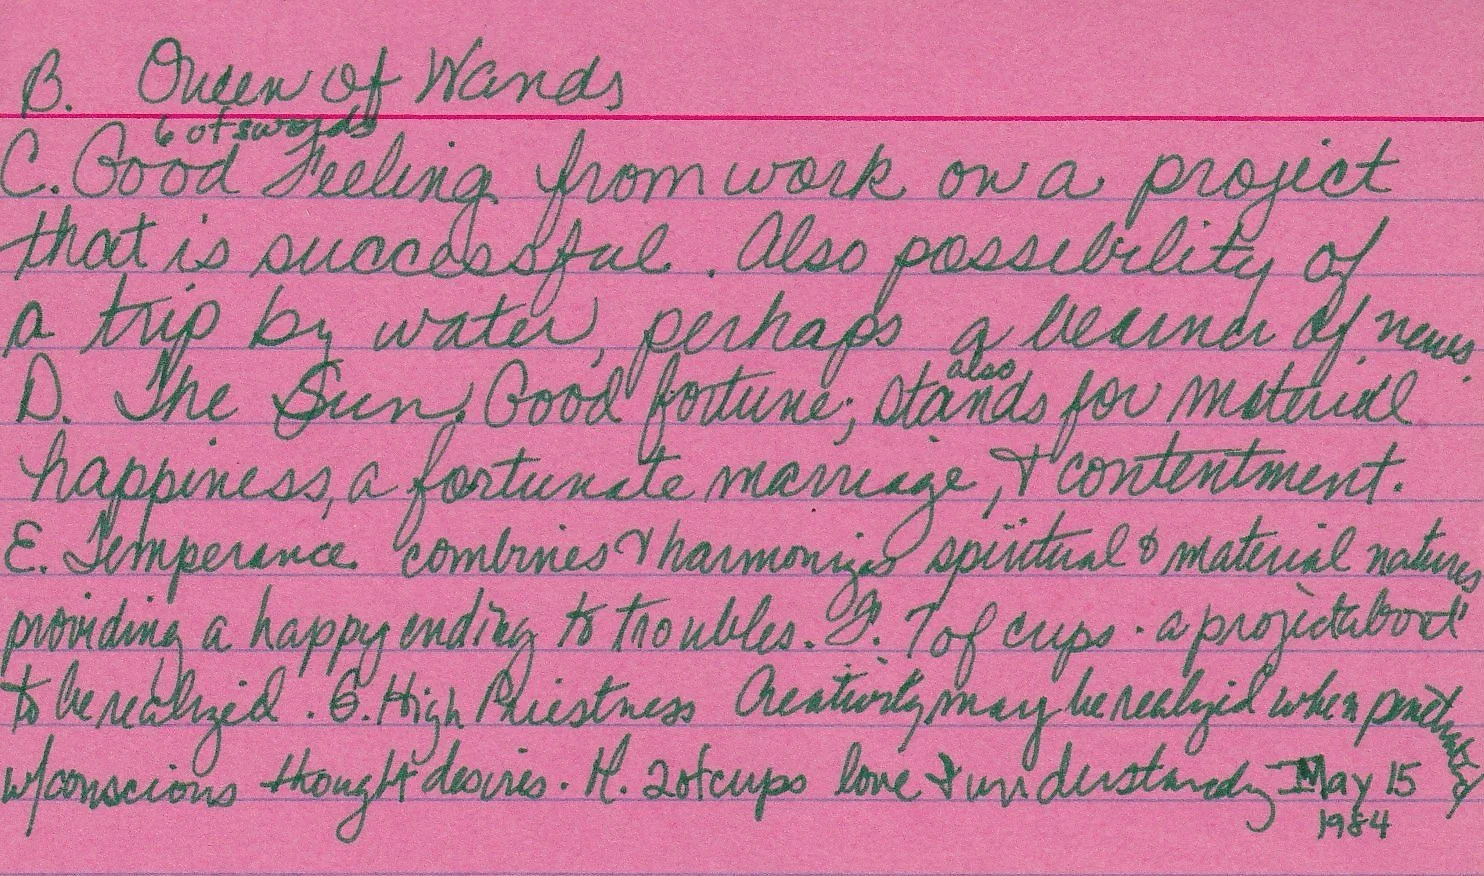 B. Queen of Wands
6 of swords
C. Good Feeling from work on a project
that is successful. Also possibility of
a trip by water, perhaps a bearer of news.
also
D. The Sun. Good fortune; stands for material
happiness, a fortunate marriage, & contentment.
E. Temperance combines & harmonizes spiritual & material natures
providing a happy ending to troubles. F. 7 of cups. a project about
to be realized. G. High Priestness Creativity may be realized when penetrated by
w/conscious thought desires. H. 2 of cups love & understandg May 15
1984